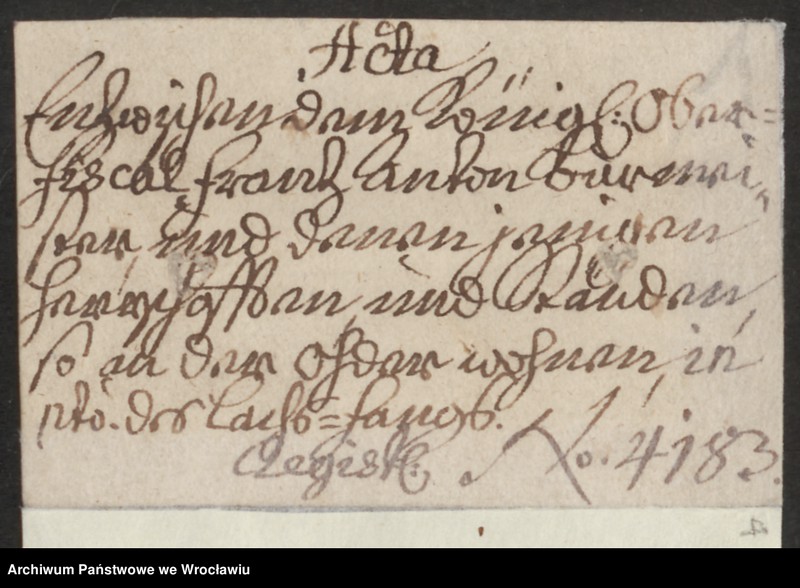 Acta
Entzwischen dem Königl: Ober=
fiscal Frantz Anton Burmei,
ster, und denen jenigen
Herrschafften, und Ständen,
so an der Ohder wohnen, in
pto. des Lachs=fangs.
Registr. No. 4183.
4
Archiwum Państwowe we Wrocławiu